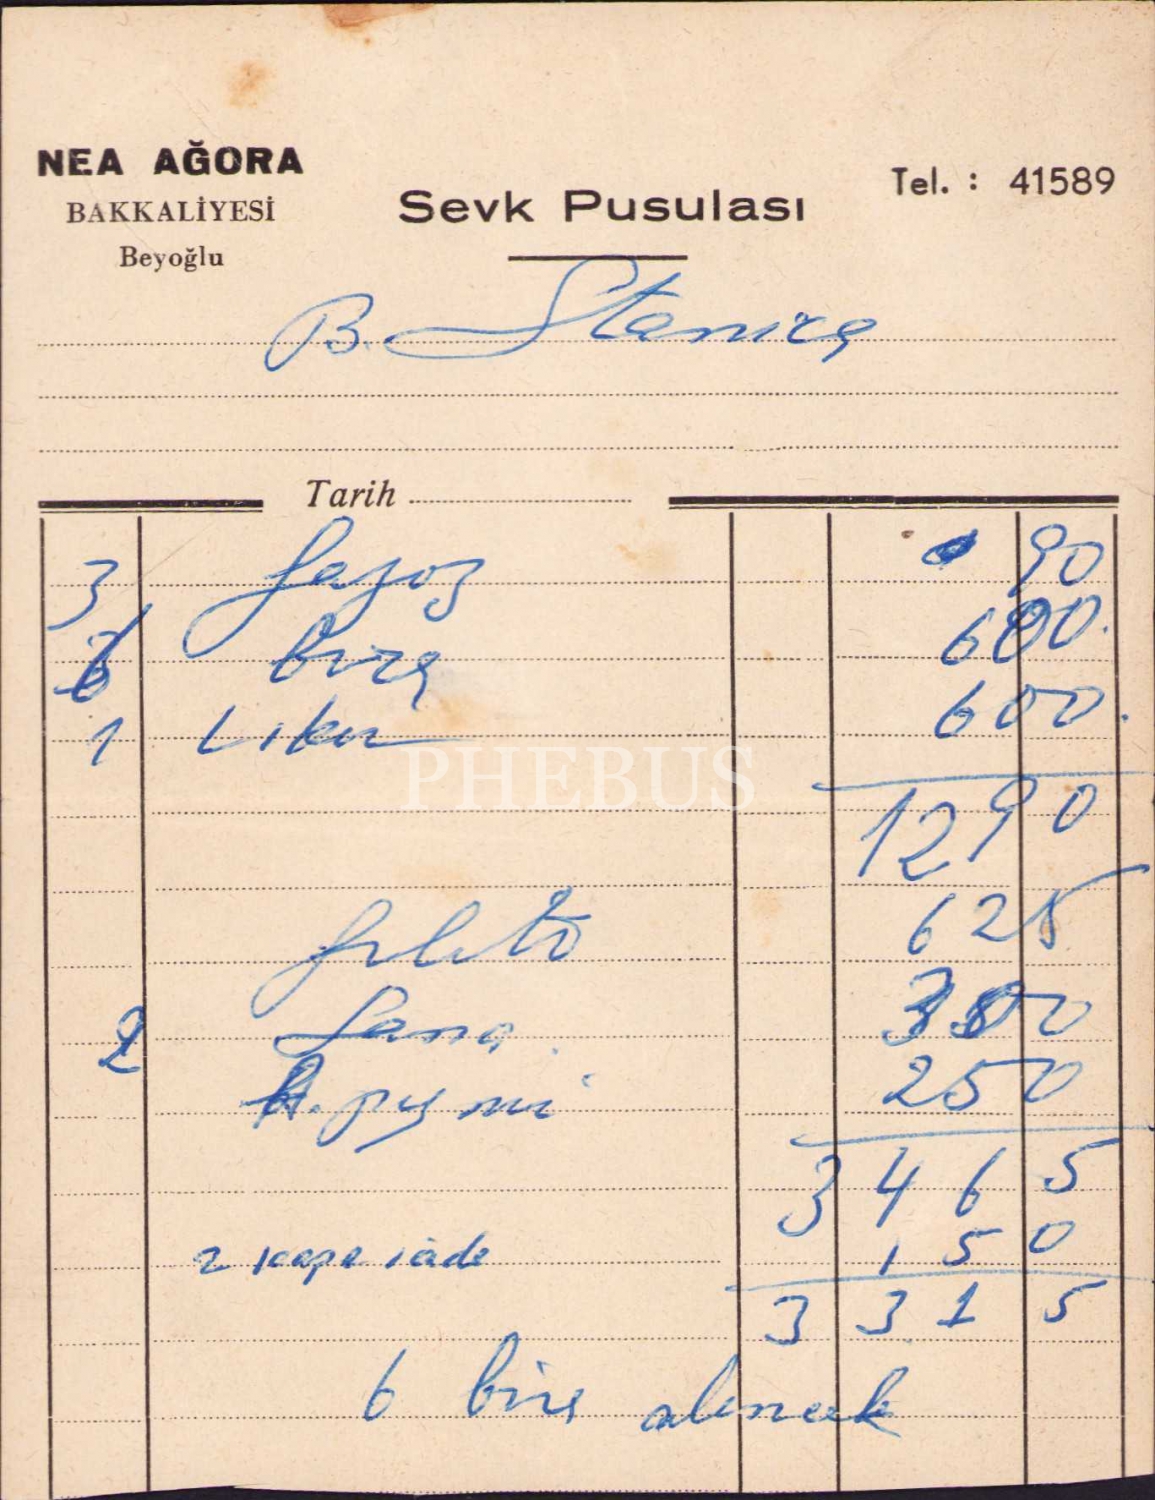 NEA AĞORA
BAKKALİYESİ
Beyoğlu
Sevk Pusulası
Tel. : 41589
B. Stanica
Tarih
3 Gazoz 90
6 bira 600.
1 Likör 600.
PHEBUS
1290
fileto 625
2 Sana 300
250
3465
2 kapa iade 150
3315
6 bira alınacak